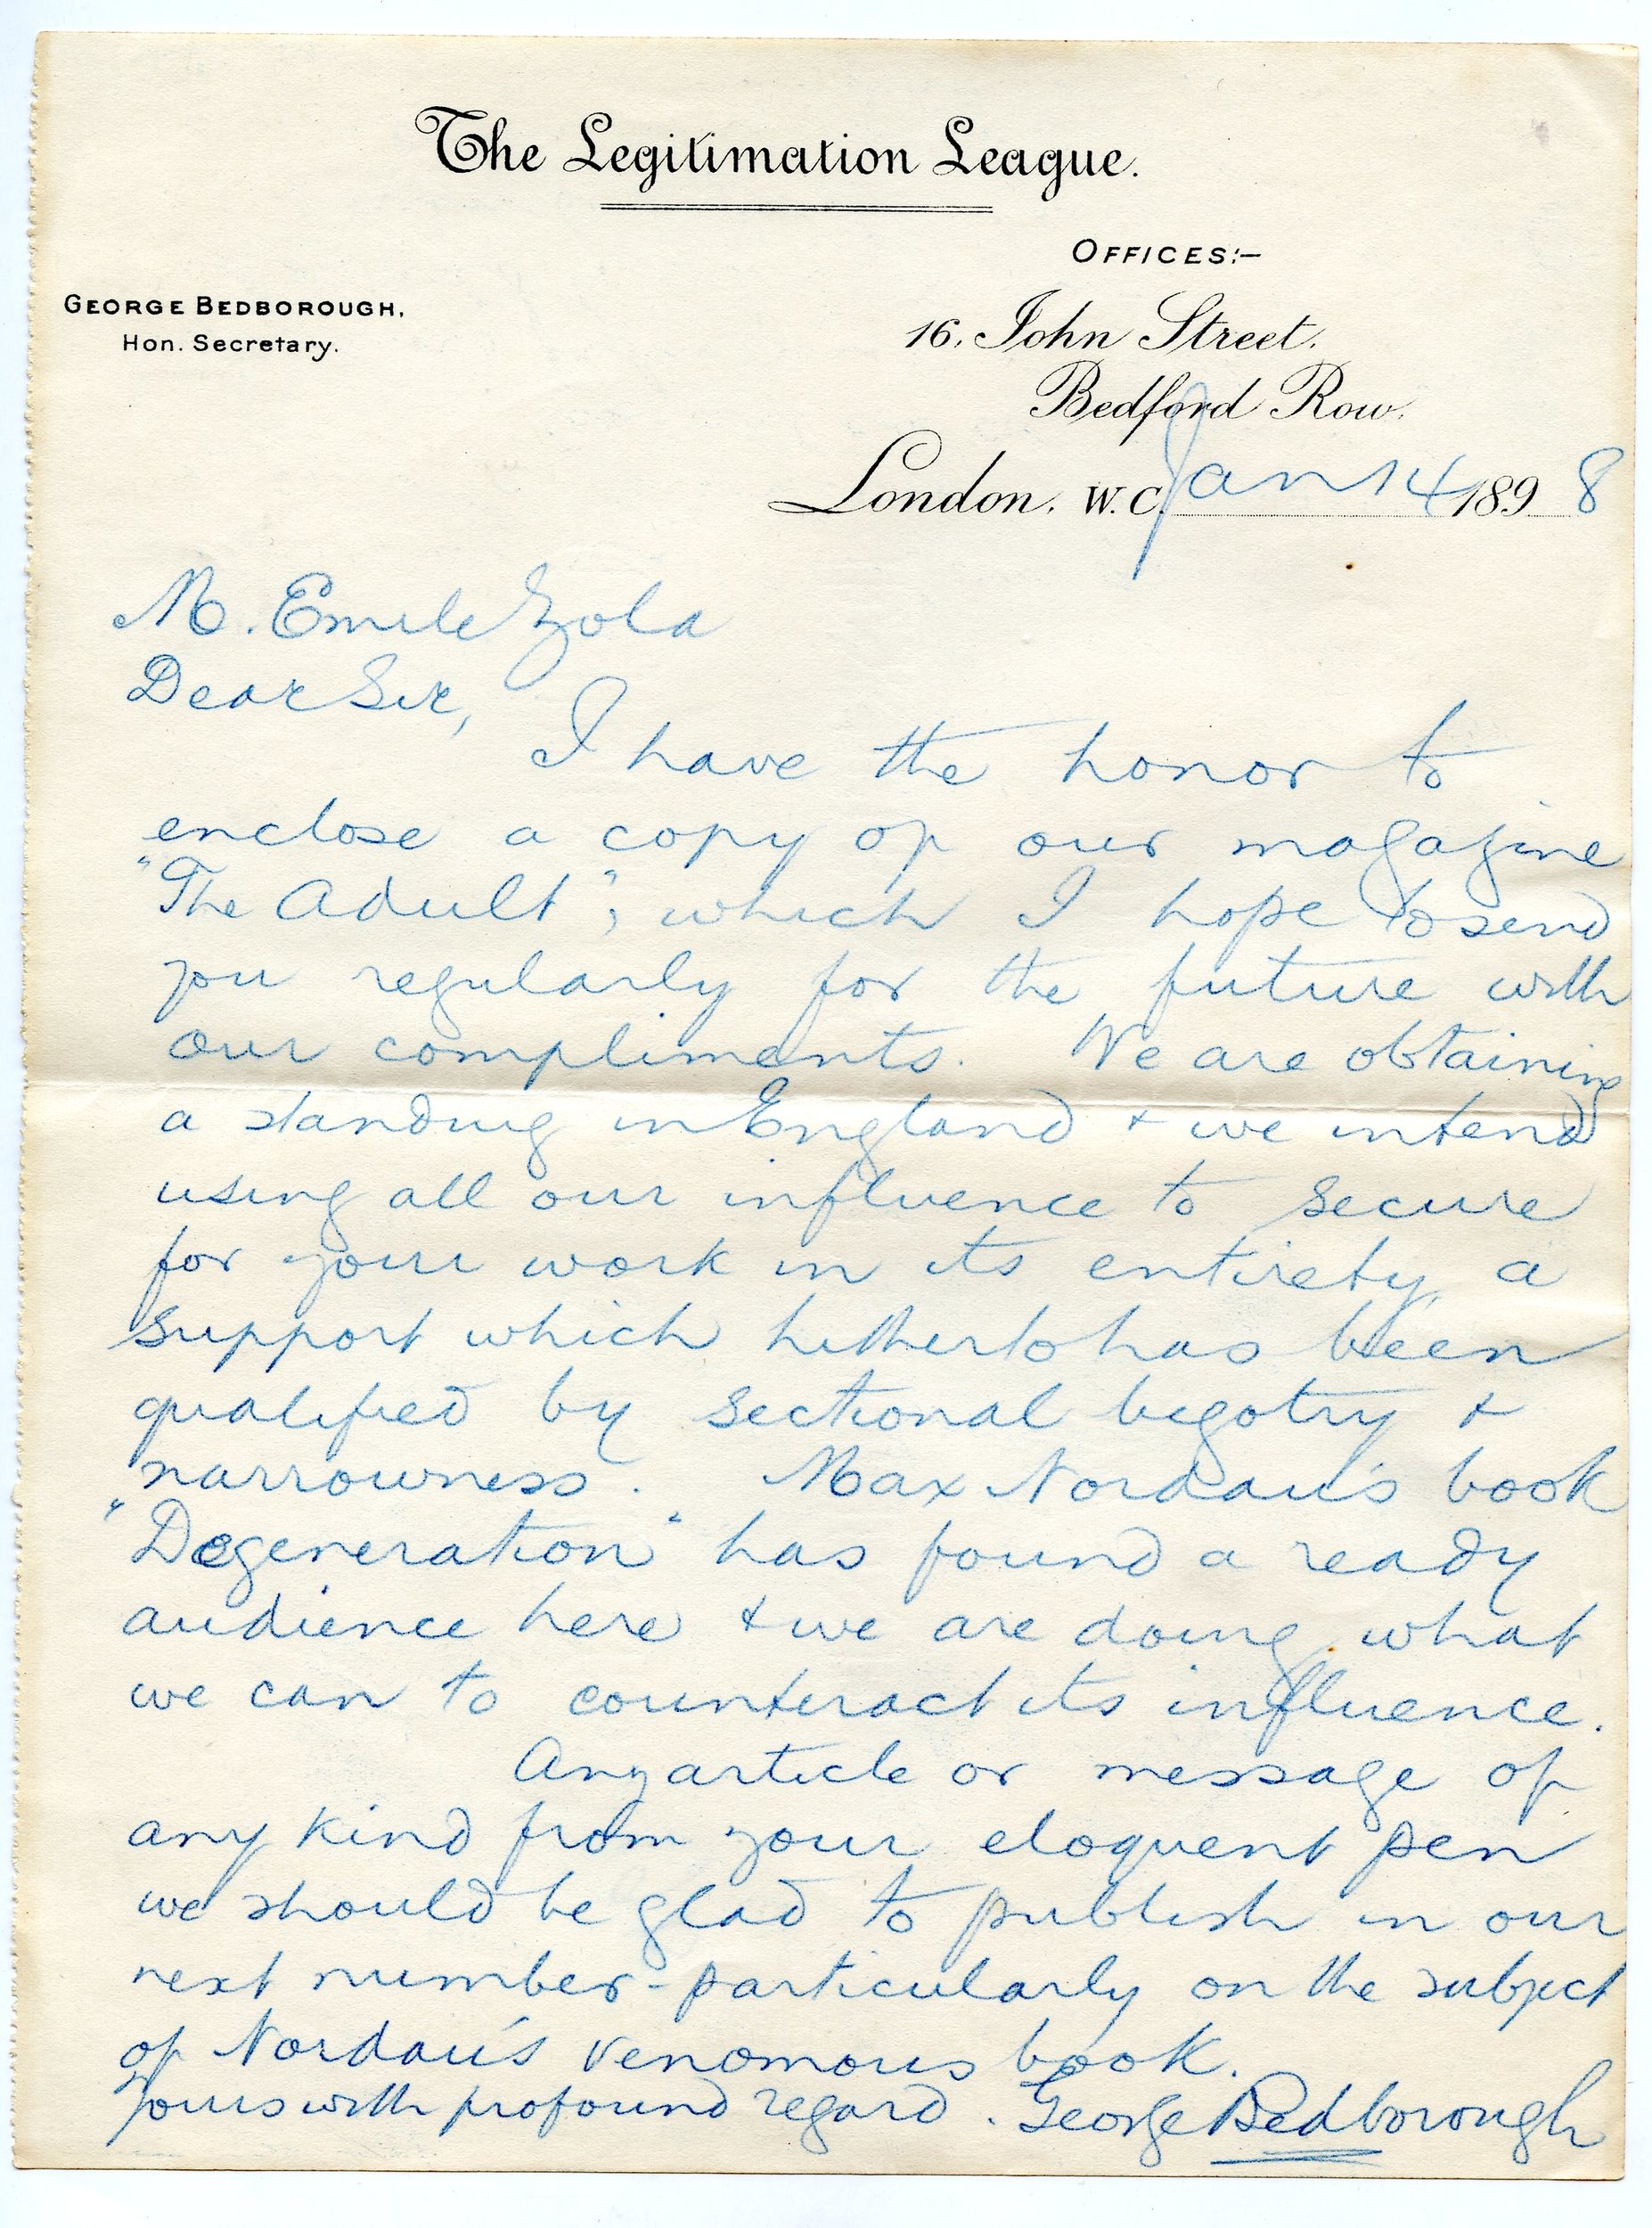 The Legitimation League.
OFFICES:—
GEORGE BEDBOROUGH,
Hon. Secretary.
16, John Street,
Bedford Row,
London, W.C. Jan 14 1898
M. Emile Zola
Dear Sir,
I have the honor to
enclose a copy of our magazine
"The Adult", which I hope to send
you regularly for the future with
our compliments. We are obtaining
a standing in England & we intend
using all our influence to secure
for your work in its entirety, a
support which hitherto has been
qualified by sectional bigotry &
narrowness. Max Nordau's book
"Degeneration" has found a ready
audience here & we are doing what
we can to counteract its influence.
Any article or message of
any kind from your eloquent pen
we should be glad to publish in our
next number - particularly on the subject
of Nordau's venomous book.
Yours with profound regard. George Bedborough